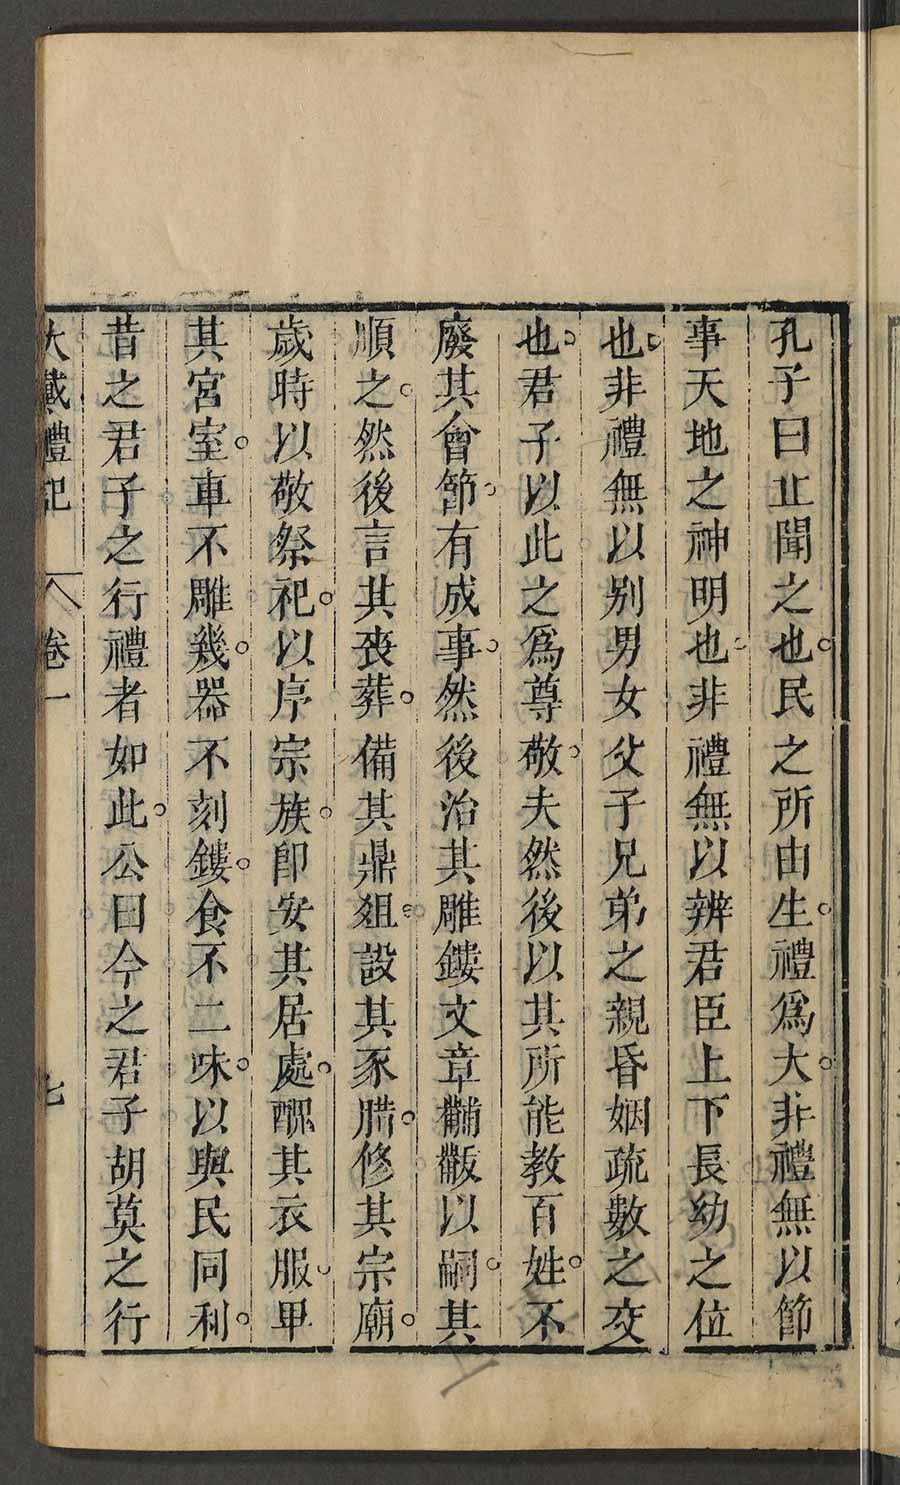 孔子曰丘聞之也民之所由生禮爲大非禮無以節
事天地之神明也非禮無以辨君臣上下長幼之位
也非禮無以别男女父子兄弟之親昏姻疏數之交
也君子以此之爲尊敬夫然後以其所能教百姓不
廢其會節有成事然後治其雕鏤文章黼黻以嗣其
順之然後言其喪葬備其鼎俎設其豕腊修其宗廟
歲時以敬祭祀以序宗族卽安其居處醜其衣服卑
其宮室車不雕幾器不刻鏤食不二味以與民同利
昔之君子之行禮者如此公曰今之君子胡莫之行
大戴禮記 卷一 七